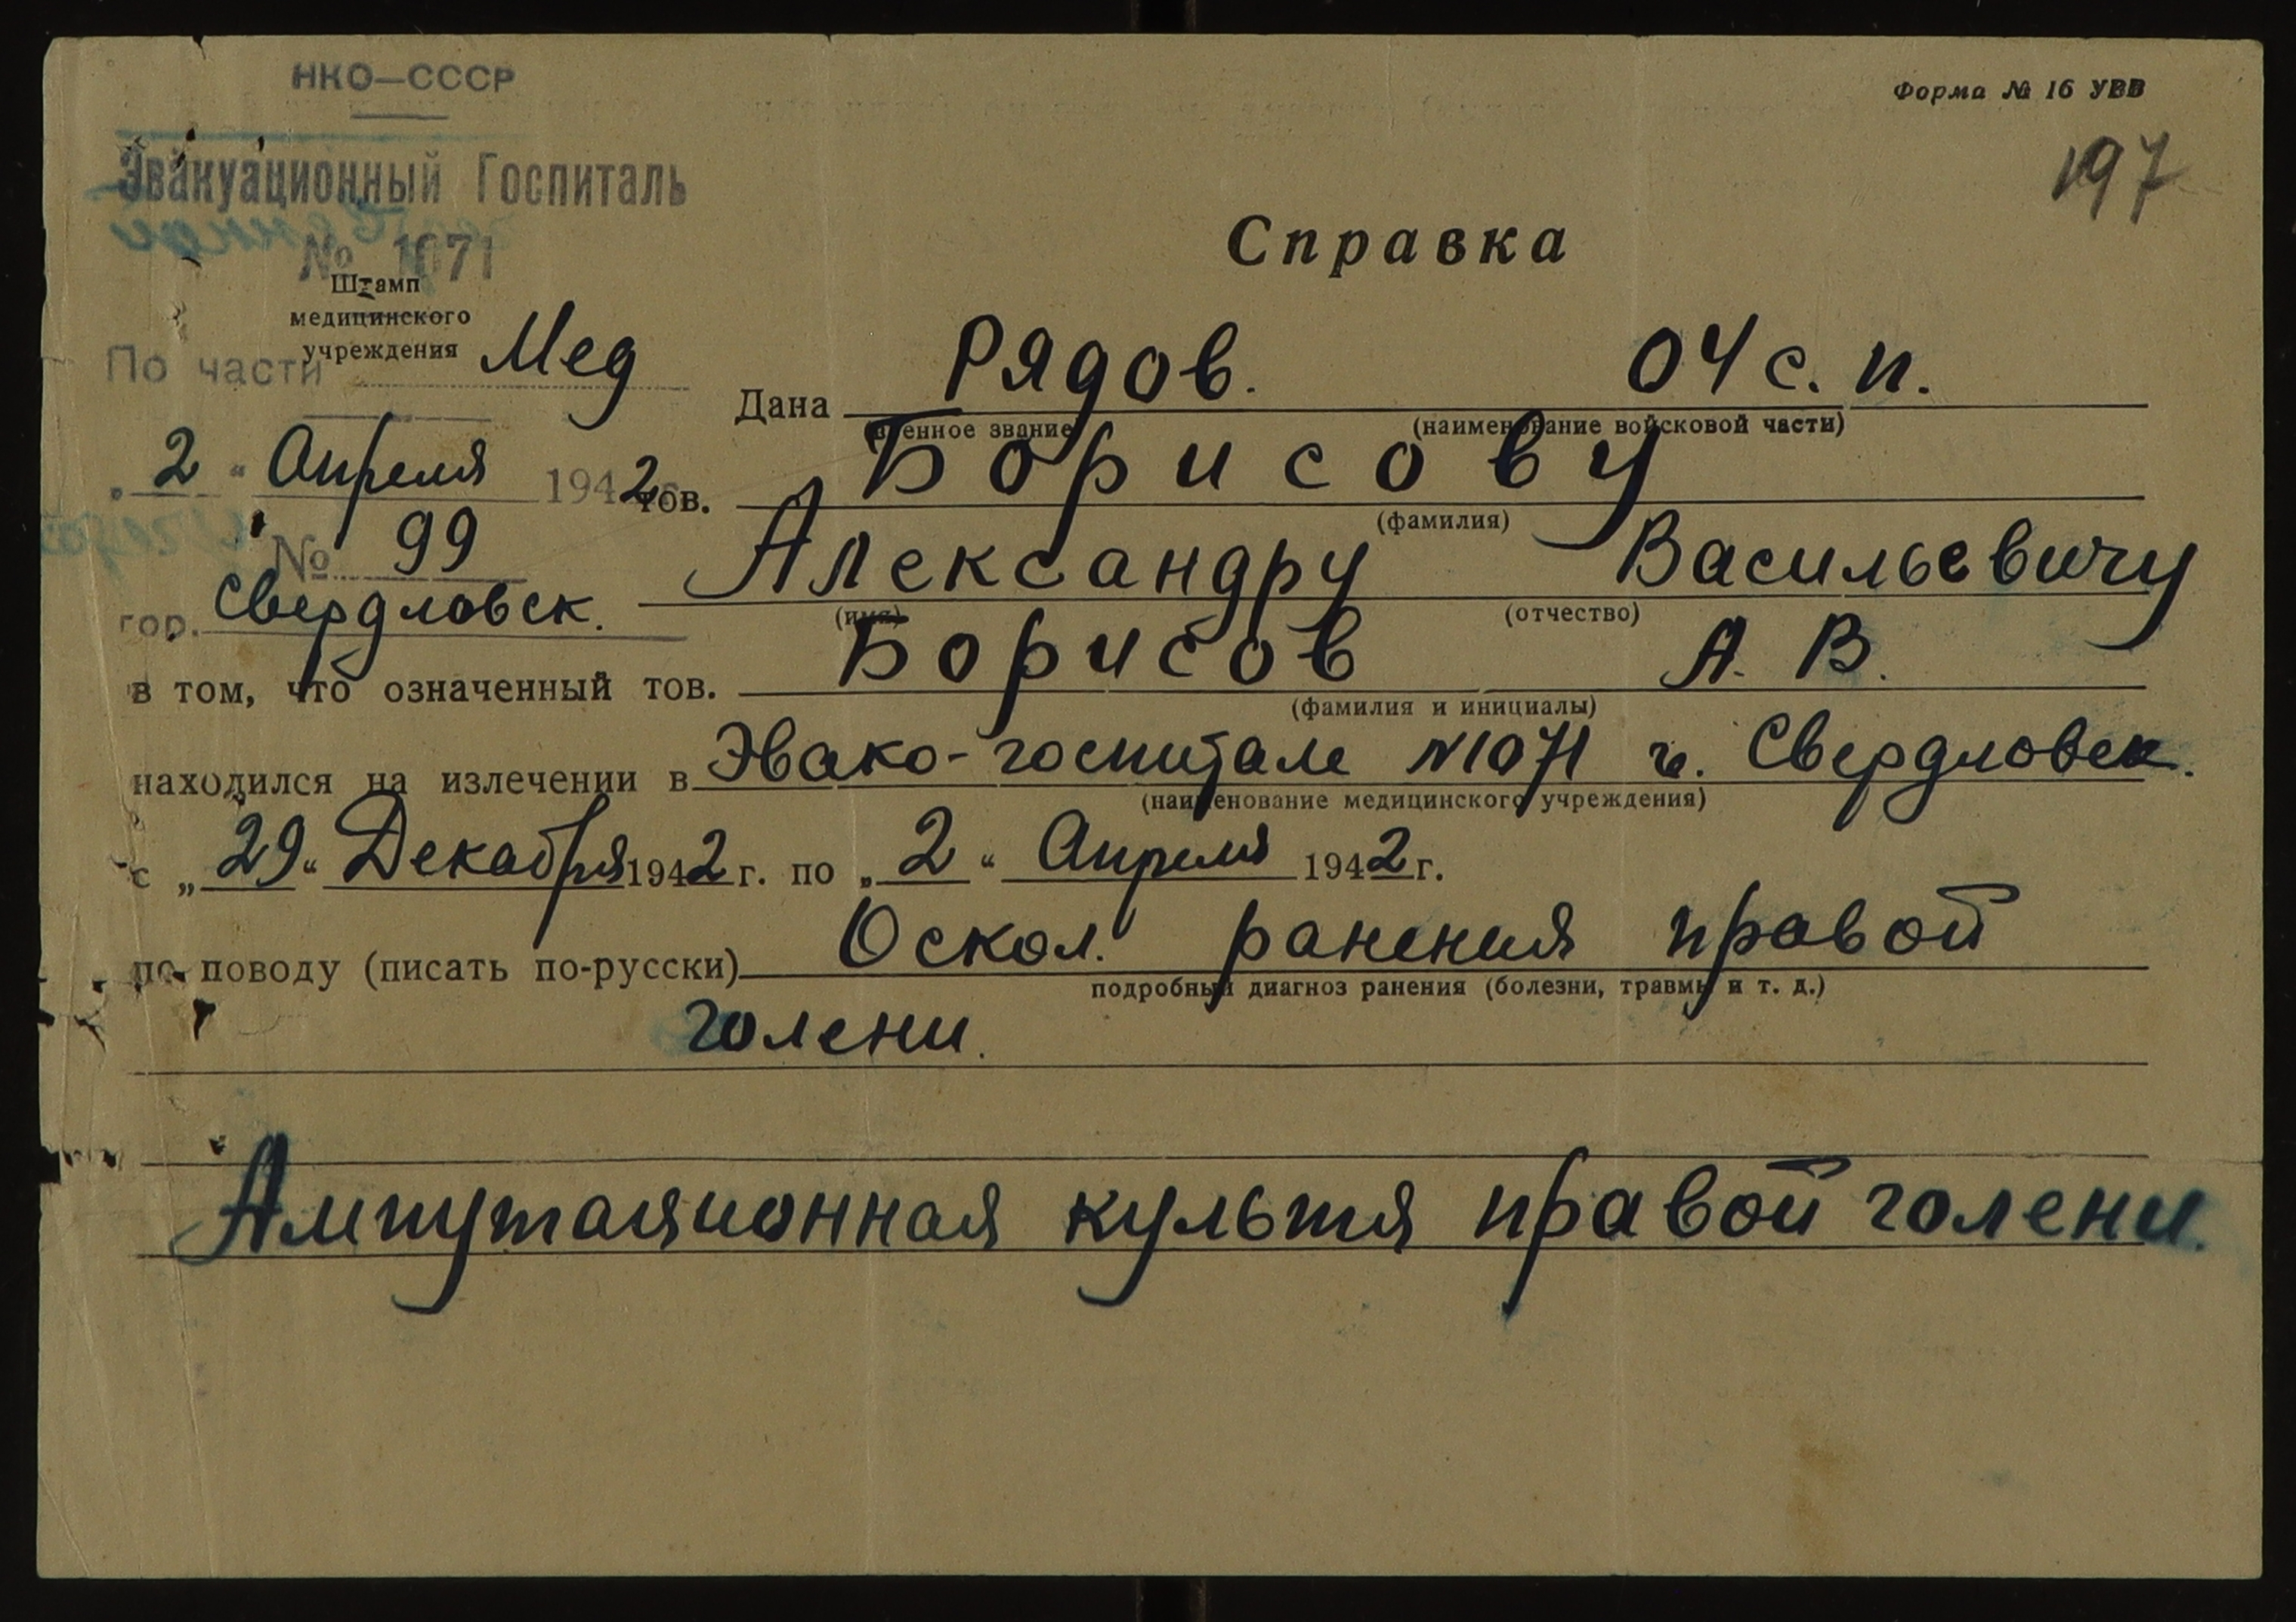 НКО—СССР
Форма № 16 УВВ
197
Эвакуационный Госпиталь
№ 1071
Справка
Штамп
медицинского
учреждения
По части Мед
Дана Рядов. 04 с. п.
(военное звание) (наименование войсковой части)
„2“ Апреля 1942
тов. Борисову
(фамилия)
№ 99
Александру Васильевичу
(имя) (отчество)
гор. Свердловск.
в том, что означенный тов. Борисов А. В.
(фамилия и инициалы)
находился на излечении в Эвако-госпитале №1071 г. Свердловск.
(наименование медицинского учреждения)
с „29“ Декабря 1942 г. по „2“ Апреля 1942 г.
по поводу (писать по-русски) Оскол. ранения правой
подробный диагноз ранения (болезни, травмы и т. д.)
голени.
Ампутационная культя правой голени.